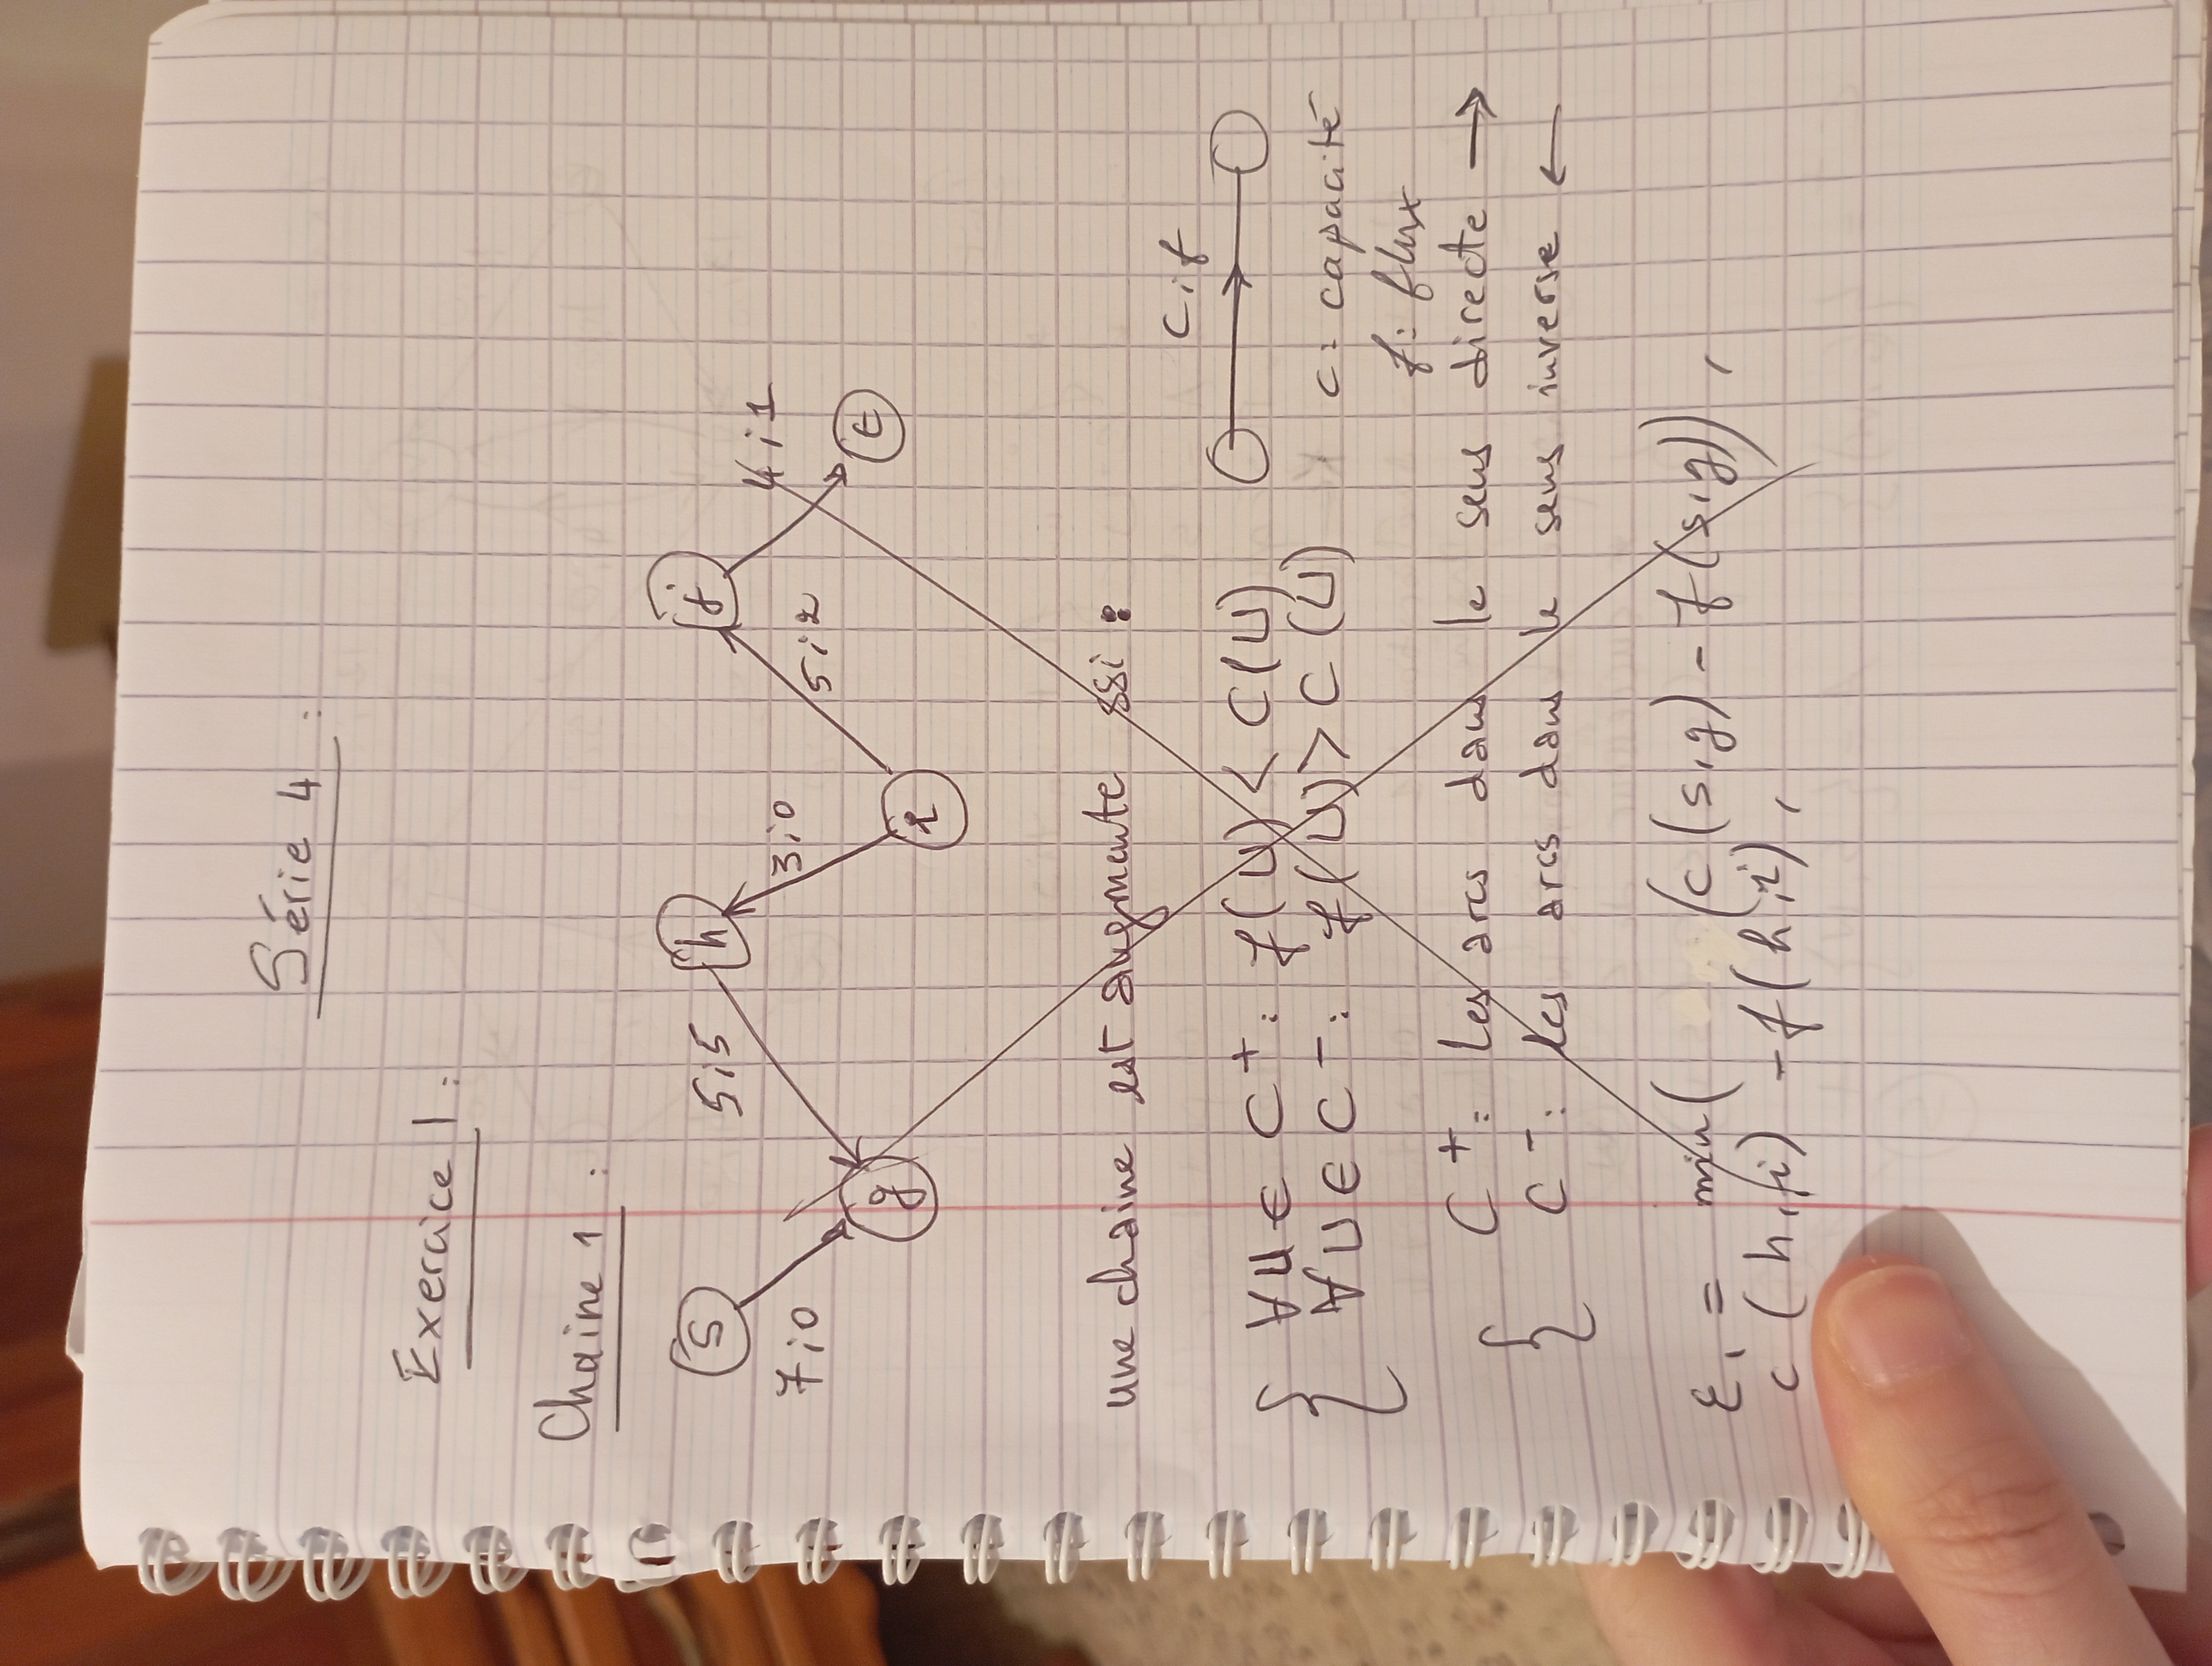 Série 4 :
Exercice 1 :
Chaine 1 :
S h j
5;5 4;1
7;0 3;0 5;2
g i t
une chaine est augmente ssi :
C;f
∀U ∈ C⁺ : f(U) < C(U)
∀U ∈ C⁻ : f(U) > C(U) c : capacité
f : flux
C⁺ : les arcs dans le sens directe →
C⁻ : les arcs dans le sens inverse ←
ε₁ = min( (c(s,g) - f(s,g)) ,
c(h,i) - f(h,i) ,